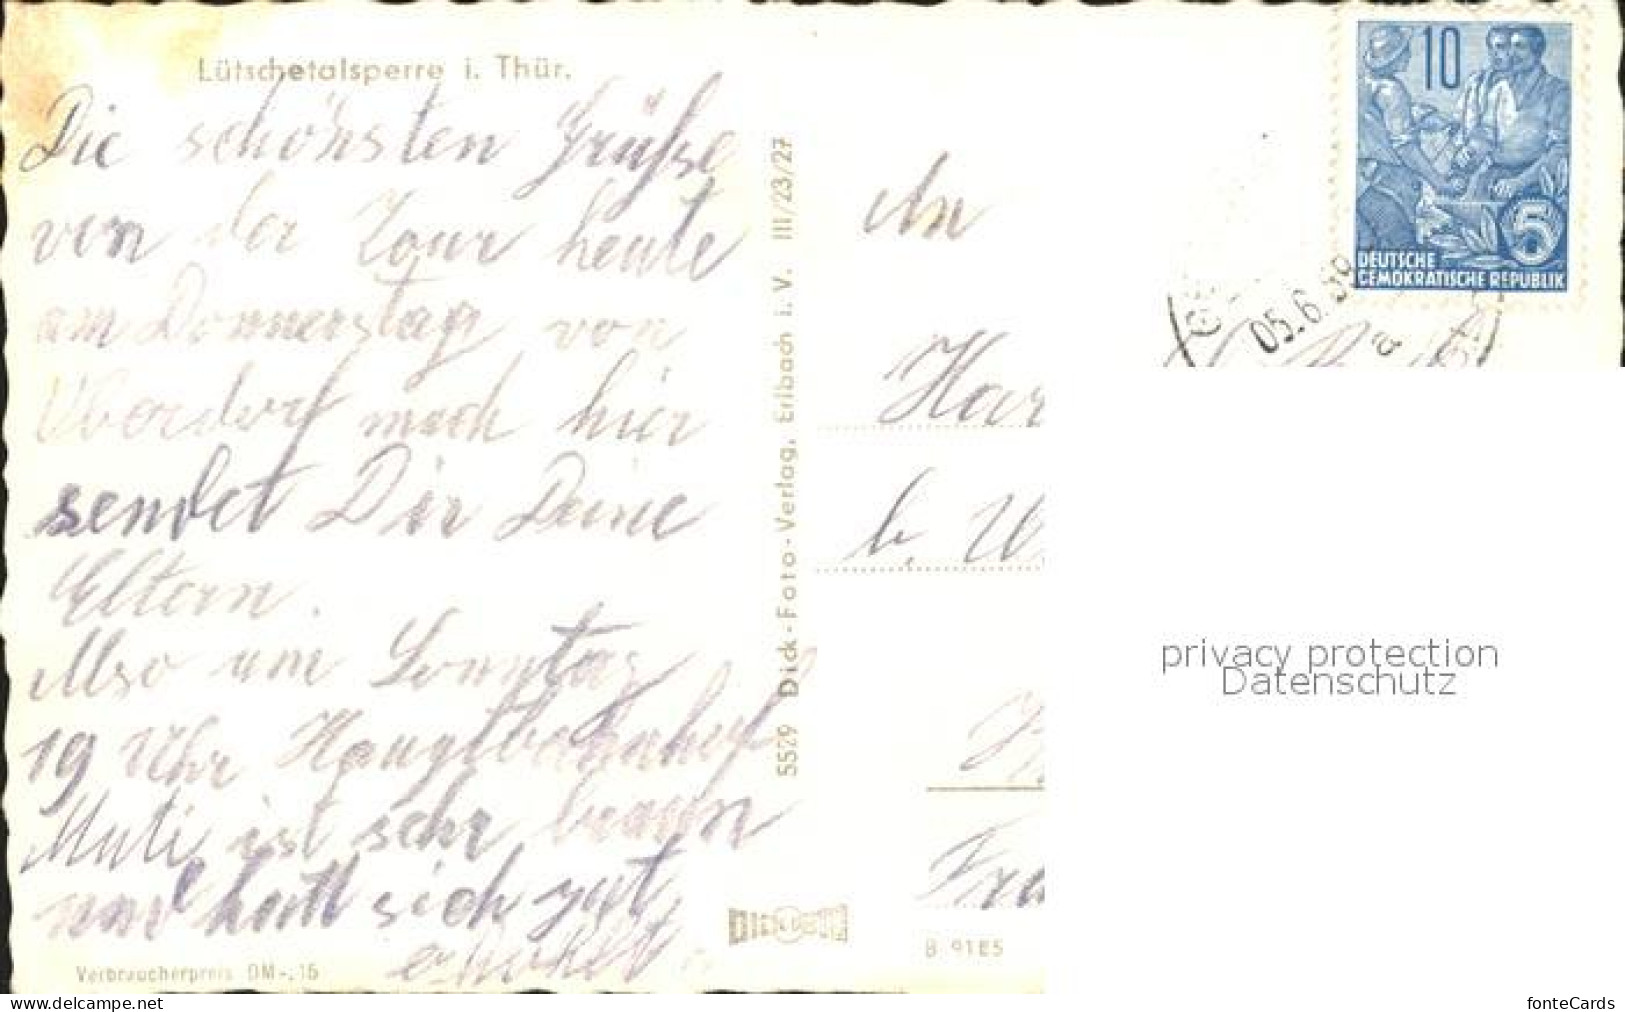 Lütschetalsperre i. Thür.
Die schönsten Grüße
von der Tour heute
am Donnerstag von
Oberdorf nach hier
sendet Dir Deine
Eltern.
Also um Sonntag
19 Uhr Hauptbahnhof
Muti ist sehr braun
und hatt sich gut
erholt.
Verbraucherpreis DM -.15
5529 Dick-Foto-Verlag, Erlbach i. V. III/23/27
10
5
DEUTSCHE
DEMOKRATISCHE REPUBLIK
05.6.59
a
An
Har
b. W.
Fra
B 9185
privacy protection
Datenschutz
www.delcampe.net
fonteCards